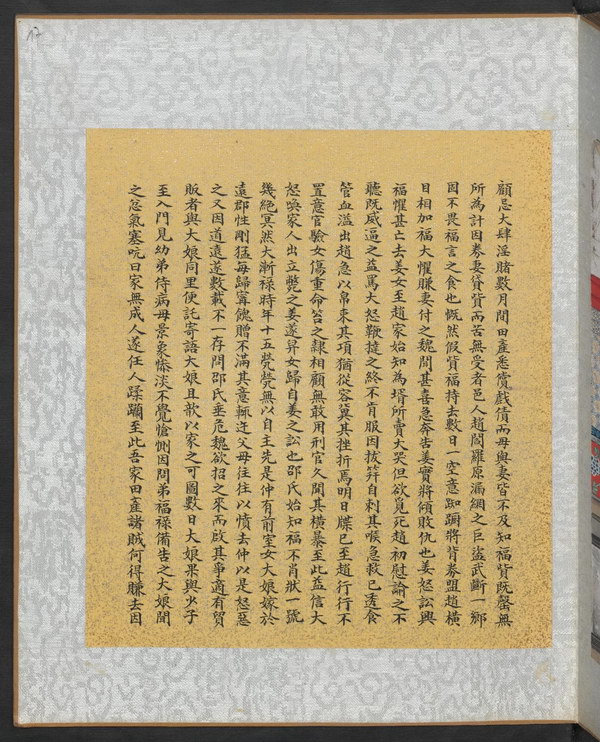 17
顧忌大肆淫賭數月間田產悉償戲債而母與妻皆不及知福貲既罄無
所為計因券妻貸貲而苦無受者邑人趙閻羅原漏網之巨盜武斷一鄉
因不畏福言之食也慨然假貲福持去數日一空意踟躕將背券盟趙橫
目相加福大懼賺妻付之魏聞甚喜急奔告姜實將傾敗仇也姜怒訟興
福懼甚亡去姜女至趙家始知為壻所賣大哭但欲覓死趙初慰諭之不
聽既威逼之益罵大怒鞭撻之終不肯服因拔笄自刺其喉急救已透食
管血溢出趙急以帛束其項猶從容冀其挫折焉明日牒已至趙行行不
置意官驗女傷重命笞之隸相顧無敢用刑官久聞其橫暴至此益信大
怒喚家人出立斃之姜遂舁女歸自姜之訟也邵氏始知福不肖狀一號
幾絕冥然大漸祿時年十五煢煢無以自主先是仲有前室女大娘嫁於
遠郡性剛猛每歸寧餽贈不滿其意輒迕父母往往以憤去仲以是怒惡
之又因道遠遂數載不一存問邵氏垂危魏欲招之來而啟其爭適有貿
販者與大娘同里便託寄語大娘且歆以家之可圖數日大娘果與少子
至入門見幼弟侍病母景象慘淡不覺愴惻因問弟福祿備告之大娘聞
之忿氣塞吭曰家無成人遂任人蹂躪至此吾家田產諸賊何得賺去因